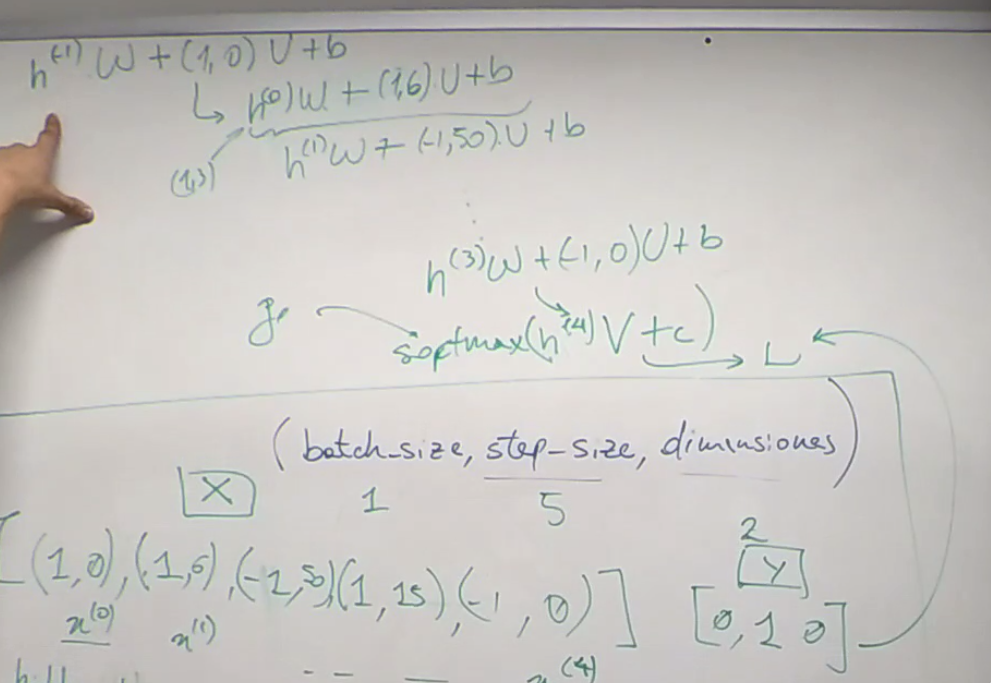 h^(-1) W + (1, 0) U + b
↳ h^(0) W + (1,6).U + b
(1,3)
h^(1) W + (-1,50).U + b
⋮
h^(3) W + (-1, 0) U + b
softmax(h^(4) V + c) → L
(batch_size, step-size, dimensiones)
X 1 5
2
Y
[(1,0), (1,6), (-1,50) (1,15), (-1, 0)] [0, 1 0]
x^(0) x^(1)
x^(4)